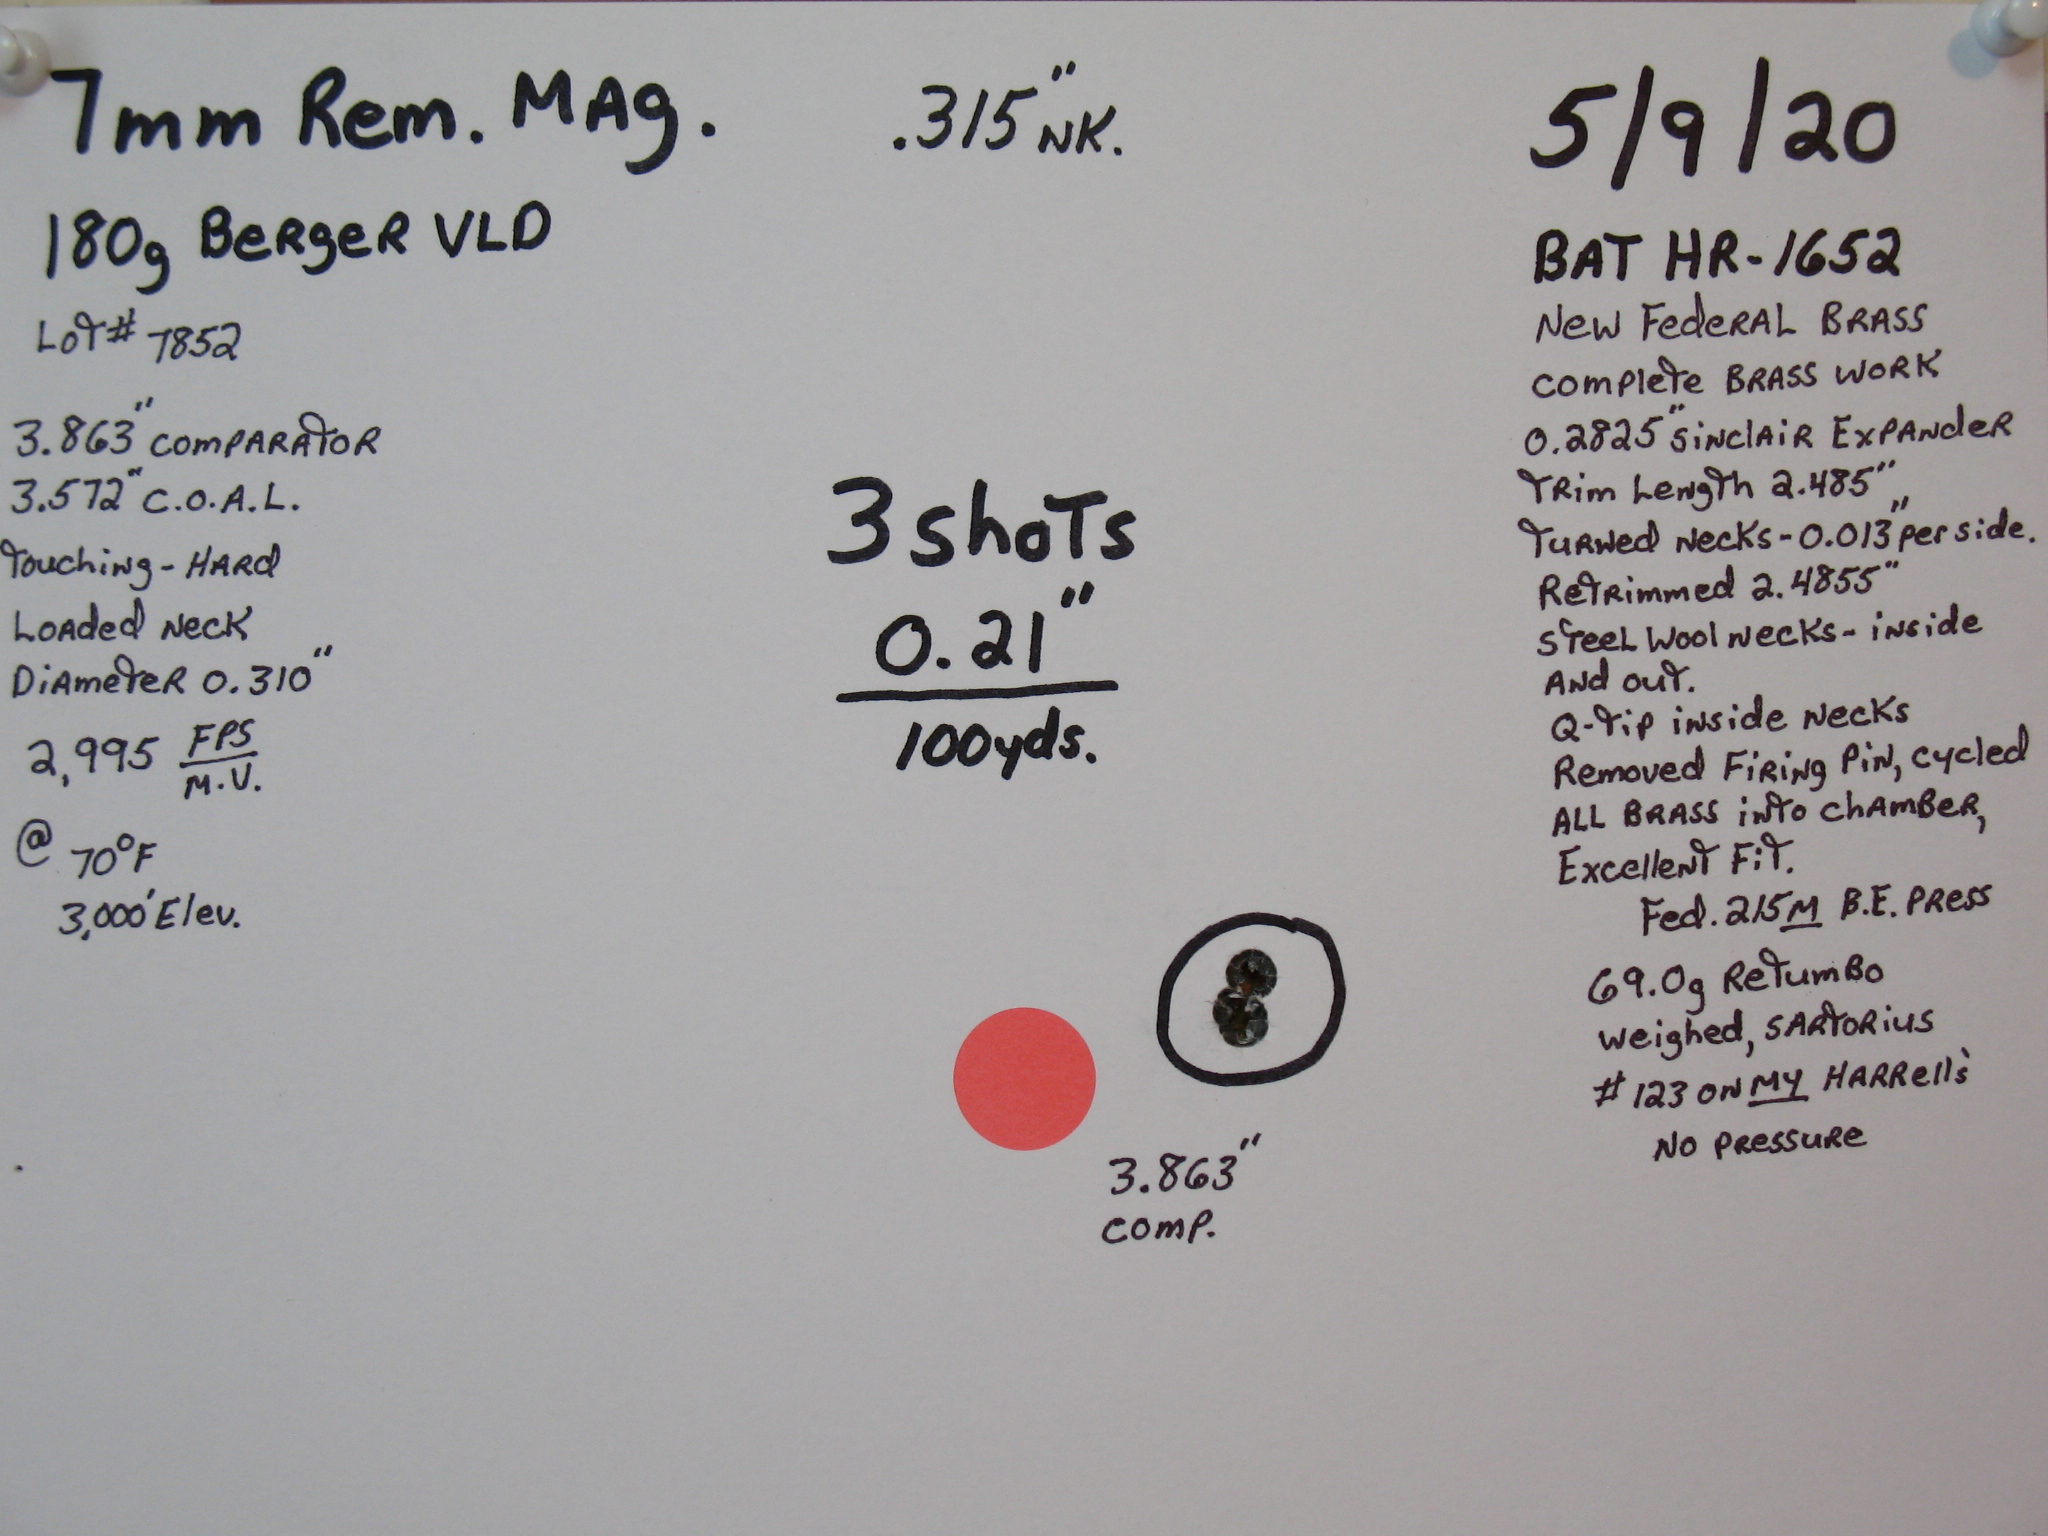 7mm Rem. MAg.
.315" NK.
5/9/20
180g BeRgeR VLD
Lot# 7852
3.863" compARAtoR
3.572" C.O.A.L.
touching - HARd
LoAded Neck
DiAmeteR 0.310"
2,995 FPS
M.V.
@ 70°F
3,000' Elev.
3 shoTs
0.21"
100yds.
3.863"
comp.
BAT HR-1652
New FedeRAL BRASS
complete BRASS woRK
0.2825" SinclAiR ExpANdeR
tRim Length 2.485"
tuRNed Necks - 0.013" per side.
Retrimmed 2.4855"
steeL Wool Necks - inside
ANd out.
Q-tip inside Necks
Removed FiRiNg PiN, cycled
ALL BRASS iNto chAmBeR,
ExcelleNt Fit.
Fed. 215M B.E. PRess
69.0g RetumBo
weighed, SARtoRius
# 123 ON MY HARRells'
No pRessuRe